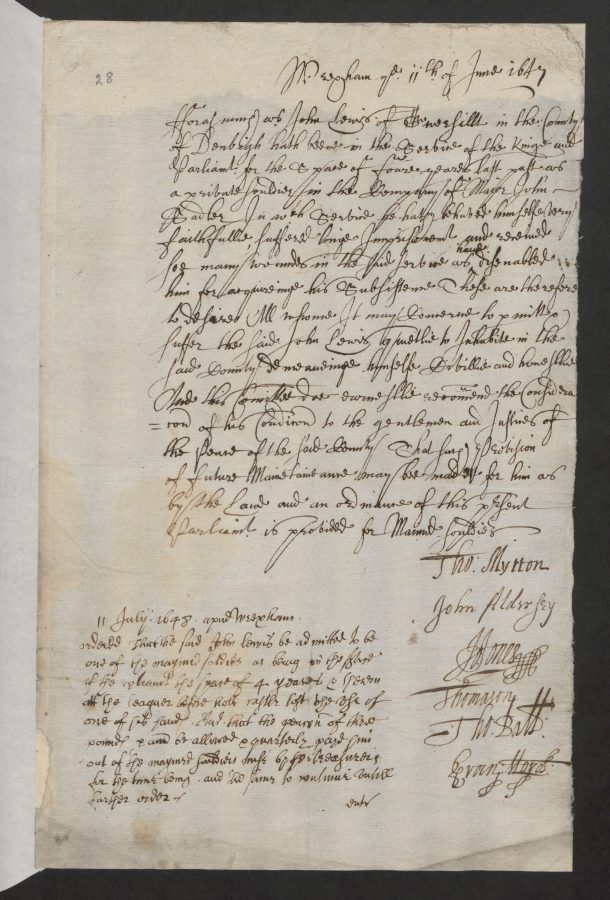 28
Wrexham ye 11th of June 1647
Forasmuch as John Lewis of Gwersillt in the County
of Denbigh hath beene in the Service of the Kinge and
Parliamt for the Space of foure yeares last past as
a private souldier in the Company of Major John
Sadler In wch Service he hath behaved himselfe very
faithfullie suffered longe Imprisonment and received
soe many wounds in the said service as have disenabled
him for acquireinge his Subsistence These are therefore
to desire All whome It may Concerne to pmitt &
suffer the said John Lewis quietlie to Inhabite in the
said County demeaninge himselfe Civillie and honestlie
And this Comittee doe earnestlie recomend the Considera
=con of his Condicon to the gentlemen and Justices of
the peace of the said County That such Provision
of future Maintenance may bee made for him as
by the Lawe and an ordinance of this present
Parliamt is provided for Maimed souldiers
Tho: Mytton
John Aldersey
JJones
Tho: Ball:
11 July: 1648 apud Wrexham.
ordered that the said John Lewis be admitted to be
one of the maymed soldiers as being in the service
of the parliamt the space of 4 yeares & heere
att the leaguer before holt castle lost the use of
one of his hands And that the pencon of three
pounds p ann be allowed & quarterly payd him
out of the maymed souldiers by the treasurer
for the time being. and the same to continue untill
further order